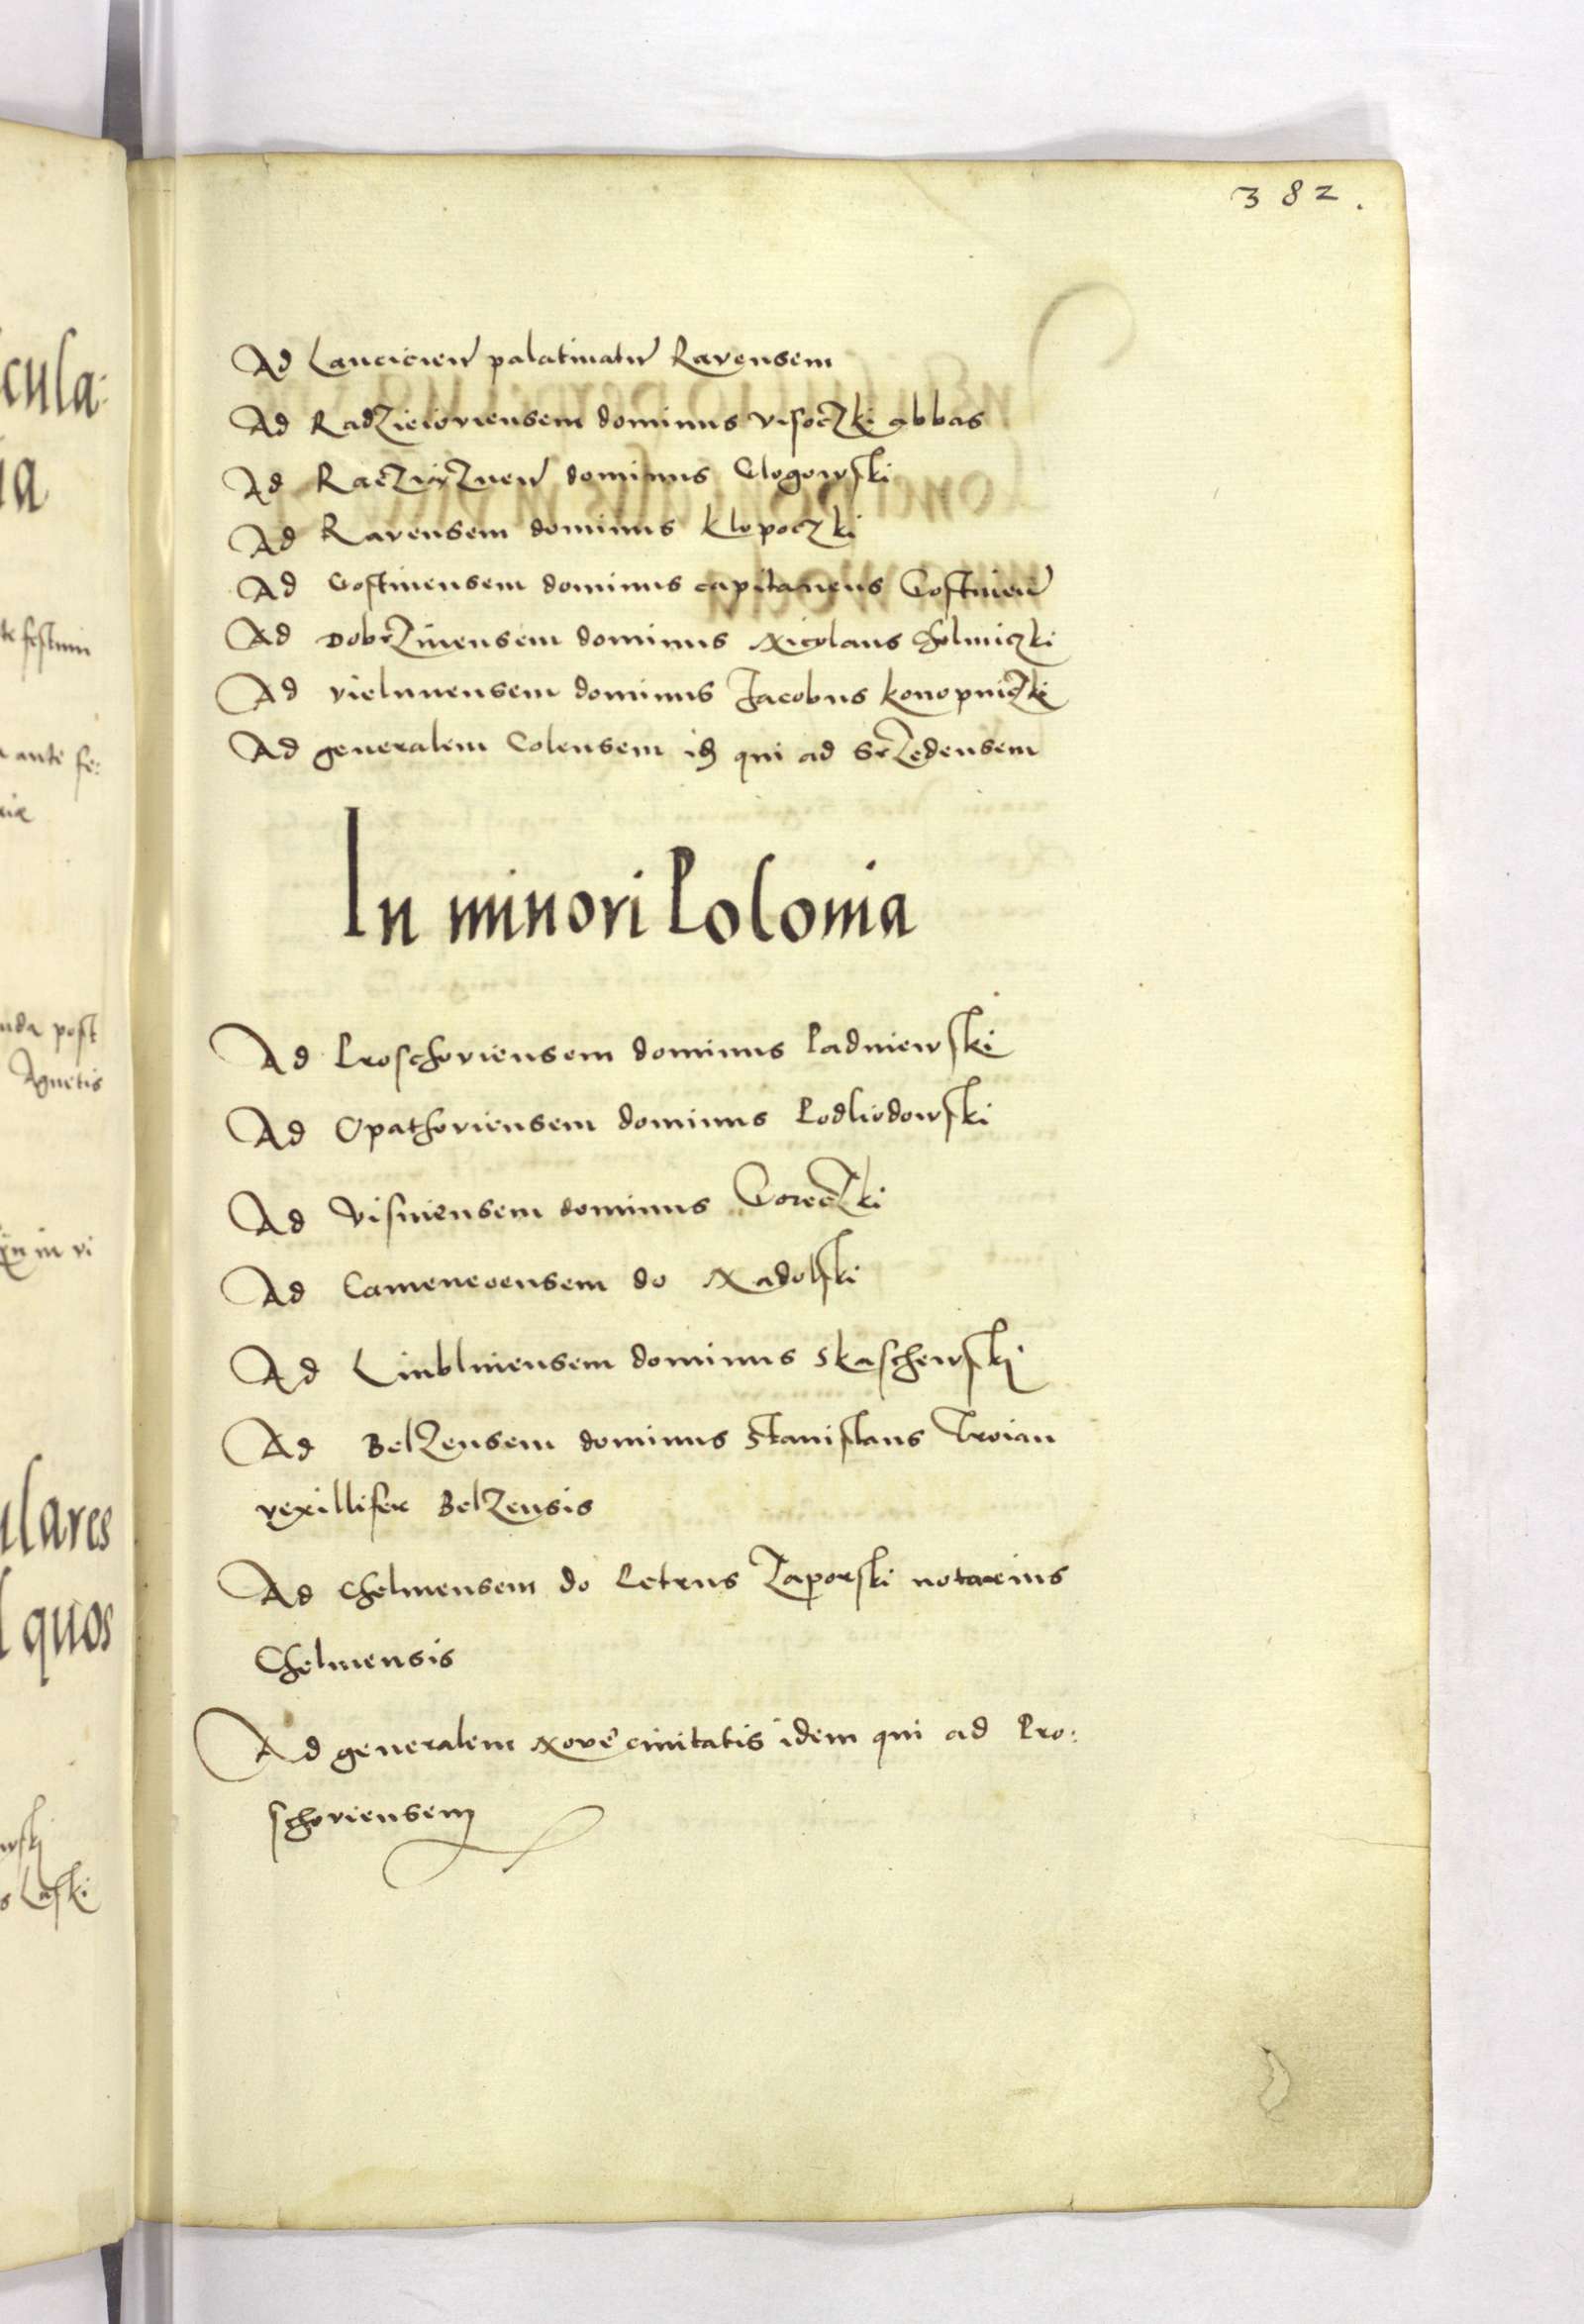 382.
Ad Lancicien palatinatu Ravensem
Ad Radzieioviensem dominus Visoczki abbas
Ad Racziąznen dominus Glogowski
Ad Ravensem dominus Klopoczki
Ad Gostinensem dominus capitaneus Gostinen
Ad Dobrzinensem dominus Nicolaus Cholmiczki
Ad Vielunensem dominus Jacobus Konopniczki
Ad generalem Colensem ijdem qui ad Srzedensem
In minori Polonia
Ad Proschoviensem dominus Padniewski
Ad Opathoviensem dominus Podliodowski
Ad Visniensem dominus Goreczki
Ad Cameneoensem do Nadolski
Ad Liublinensem dominus Skaschewski
Ad Belzensem dominus Stanislaus Troian
vexillifer Belzensis
Ad Chelmensem do Petrus Zaporski notarius
Chelmensis
Ad generalem Novę civitatis idem qui ad Pro:
schoviensem
cula:
ia
te festum
ante fe:
nda post
Agnetis
in vi
ulares
quos
wski
s Laski